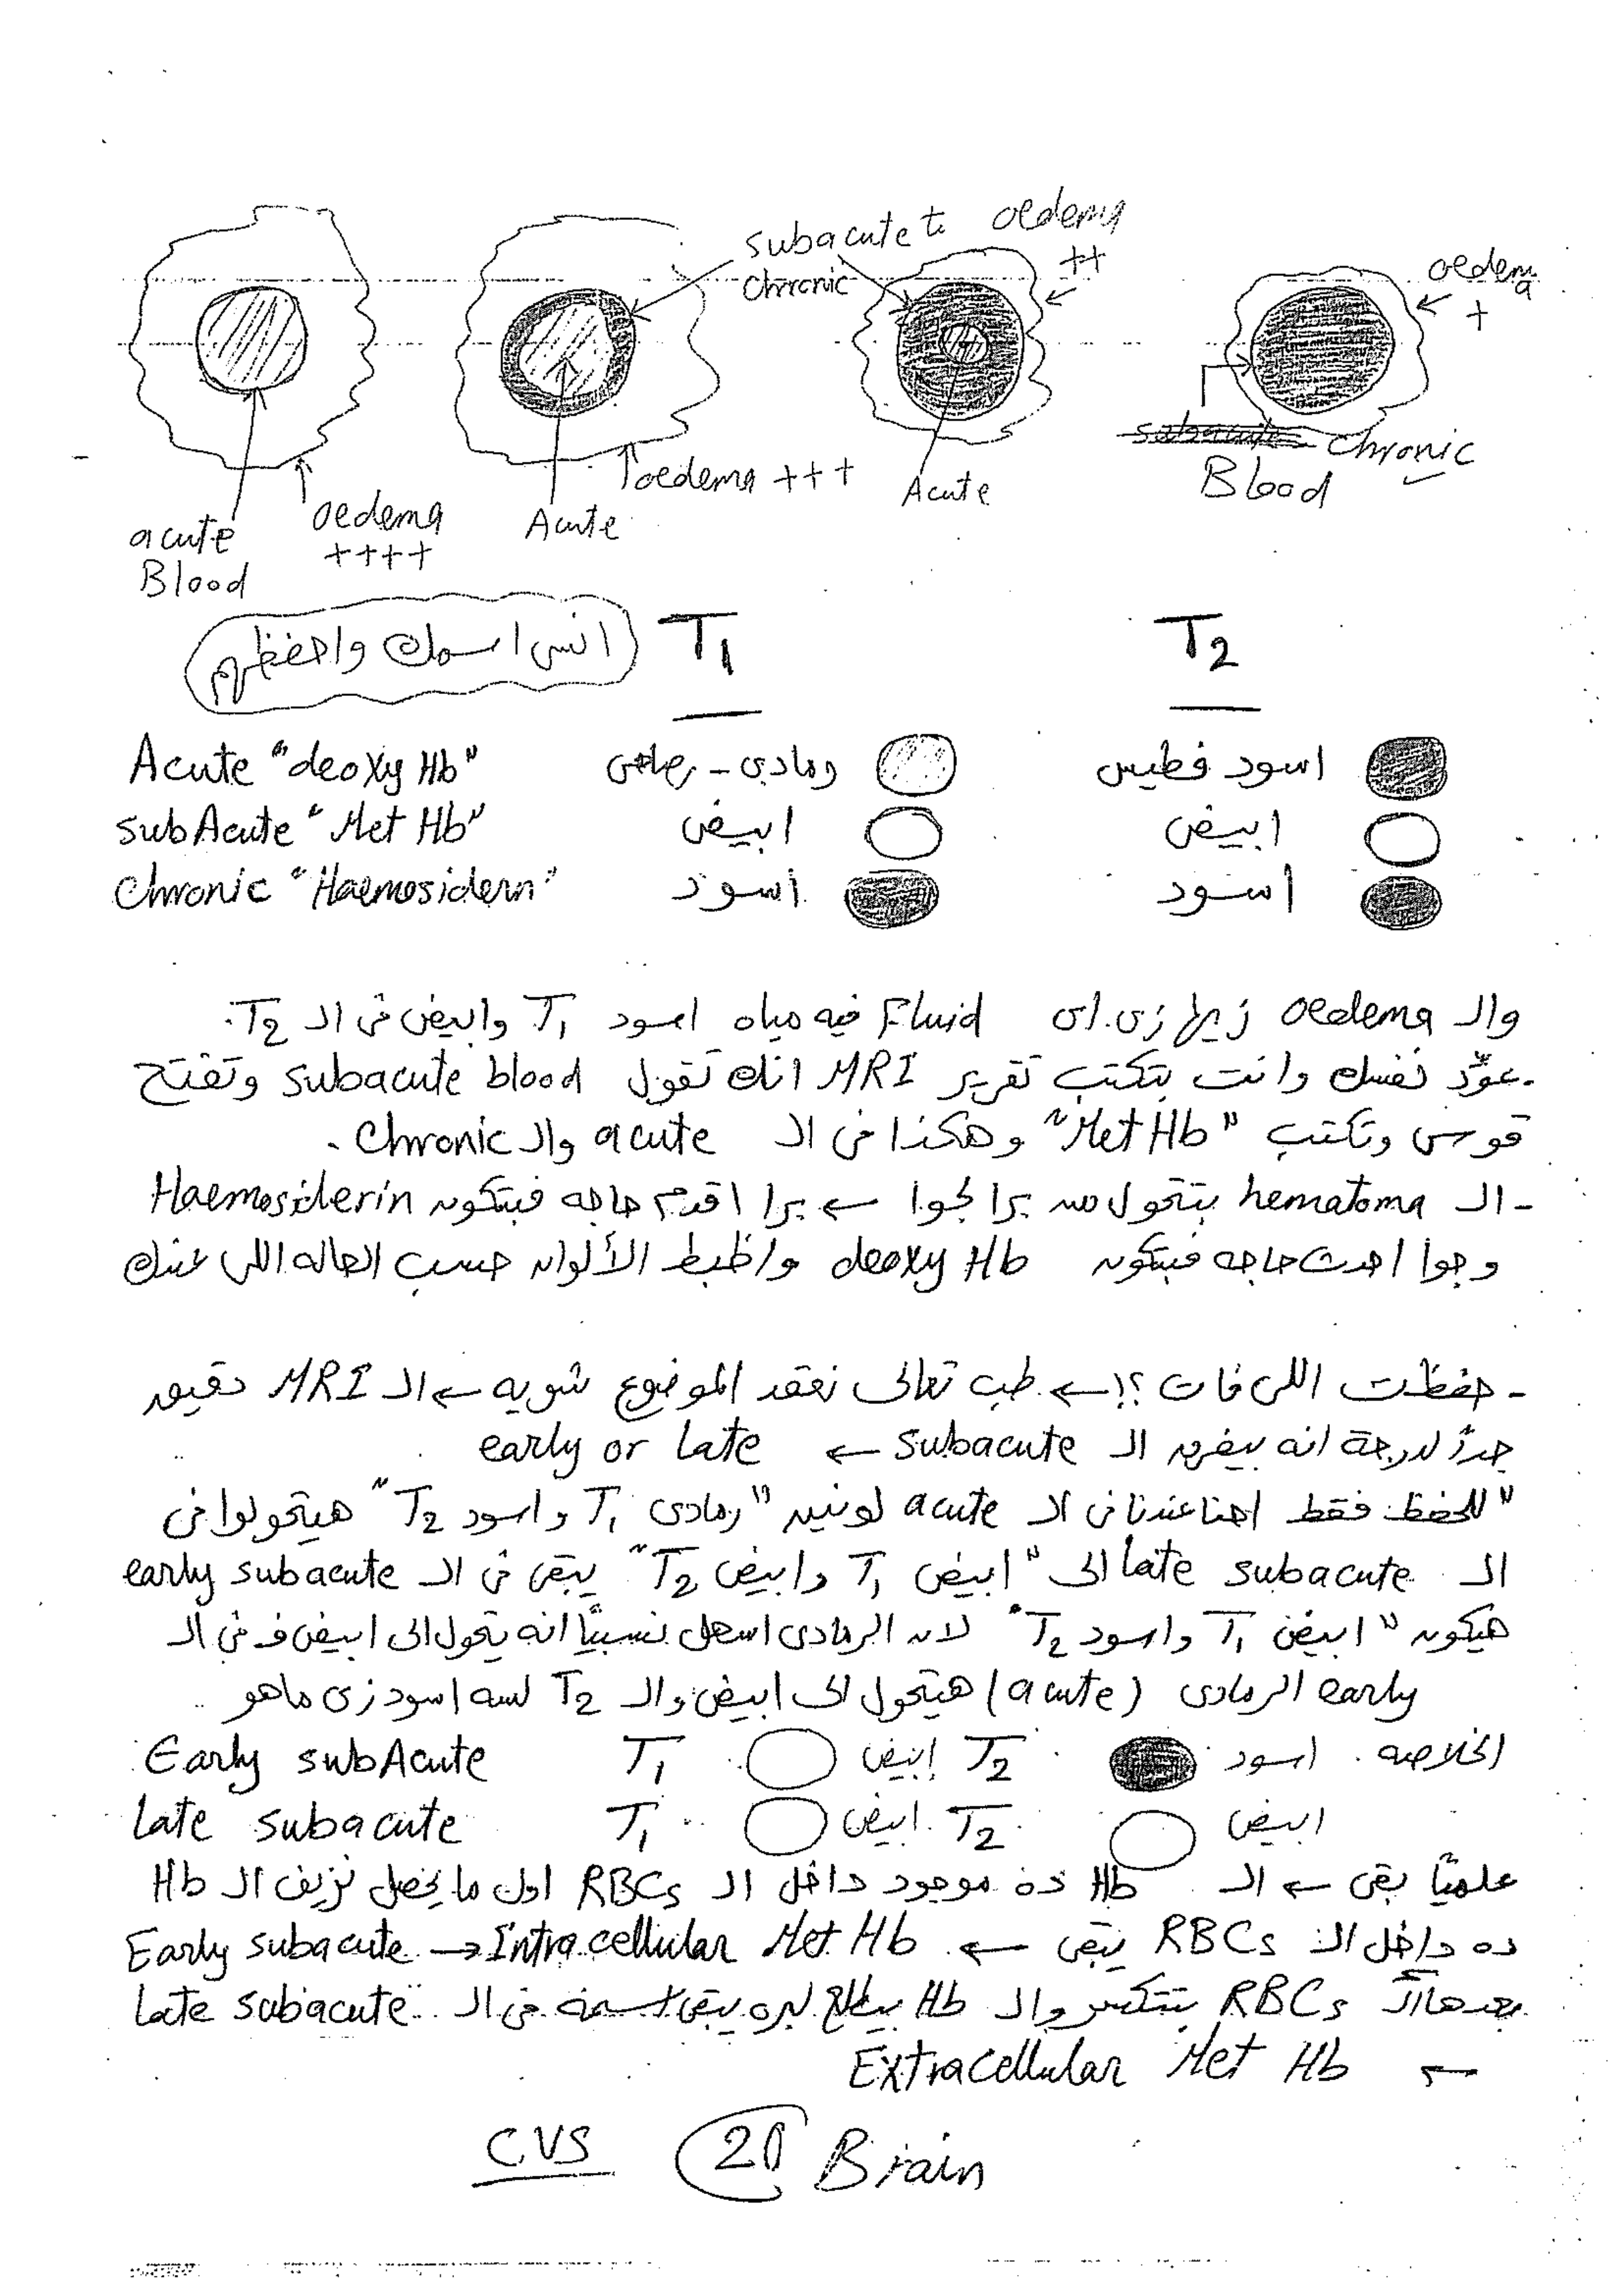 subacute to chronic
oedema ++
oedema +
acute Blood
oedema ++++
Acute
oedema +++
Acute
chronic Blood
انس اسمك واحفظهم
T1 T2
Acute "deoxy Hb" رمادي - رصاصى اسود فطيس
subAcute "Met Hb" ابيض ابيض
Chronic "Haemosidern" اسود اسود
والـ oedema زيها زى اى Fluid فيه مياه اسود T1 وابيض فى الـ T2.
- عوّد نفسك وانت بتكتب تقرير MRI انك تقول subacute blood وتفتح
قوس وتكتب "Met Hb" وهكذا فى الـ acute والـ Chronic.
- الـ hematoma بتتحول من برا لجوا ← برا اقدم حاجه فبتكون Haemosiderin
وجوا احدث حاجه فبتكون deoxy Hb واظبط الألوان حسب الحاله اللى عندك
- حفظت اللى فات ؟! ← طب تعالى نعقد الموضوع شويه ← الـ MRI دقيق
جداً لدرجة انه بيفرق الـ subacute ← early or late
"للحفظ فقط احنا عندنا فى الـ acute لونين "رمادى T1 واسود T2" هيتحولوا فى
الـ late subacute الى "ابيض T1 وابيض T2" يبقى فى الـ early subacute
هيكون "ابيض T1 واسود T2" لان الرمادى اسهل نسبيًا انه يتحول الى ابيض ف فى الـ
early الرمادى (acute) هيتحول الى ابيض والـ T2 لسه اسود زى ماهو
الخلاصه. Early subAcute T1 ابيض T2 اسود
late subacute T1 ابيض T2 ابيض
علميًا بقى ← الـ Hb ده موجود داخل الـ RBCs اول ما يحصل نزيف الـ Hb
ده داخل الـ RBCs يبقى ← Early subacute → Intracellular Met Hb
بعدها الـ RBCs بتتكسر والـ Hb بيطلع لبره يبقى اسمه فى الـ late subacute
← Extracellular Met Hb
CVS 20 Brain